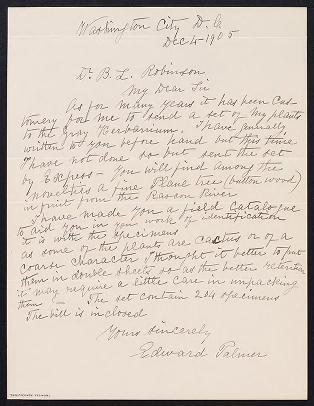 Washington City D.C.
Dec 4-1905
Dr. B. L. Robinson
My Dear Sir
As for many years it has been cus-
tomery for me to send a set of my plants
to the Gray Herbarium. I have generally
written to you before hand but this time
I have not done so but sent the set
by Express - You will find among the
novelties a fine Plane tree (button wood)
in fruit from the Rascon River
I have made you a field Catalogue
to aid you in your work of identification
it is with the specimens
as some of the plants are cactus or of a
coarse character I thought it better to put
them in double sheets so as the better retention
it may require a little care in unpacking
them - The set contain 204 specimens
The bill is inclosed
Yours sincerely
Edward Palmer